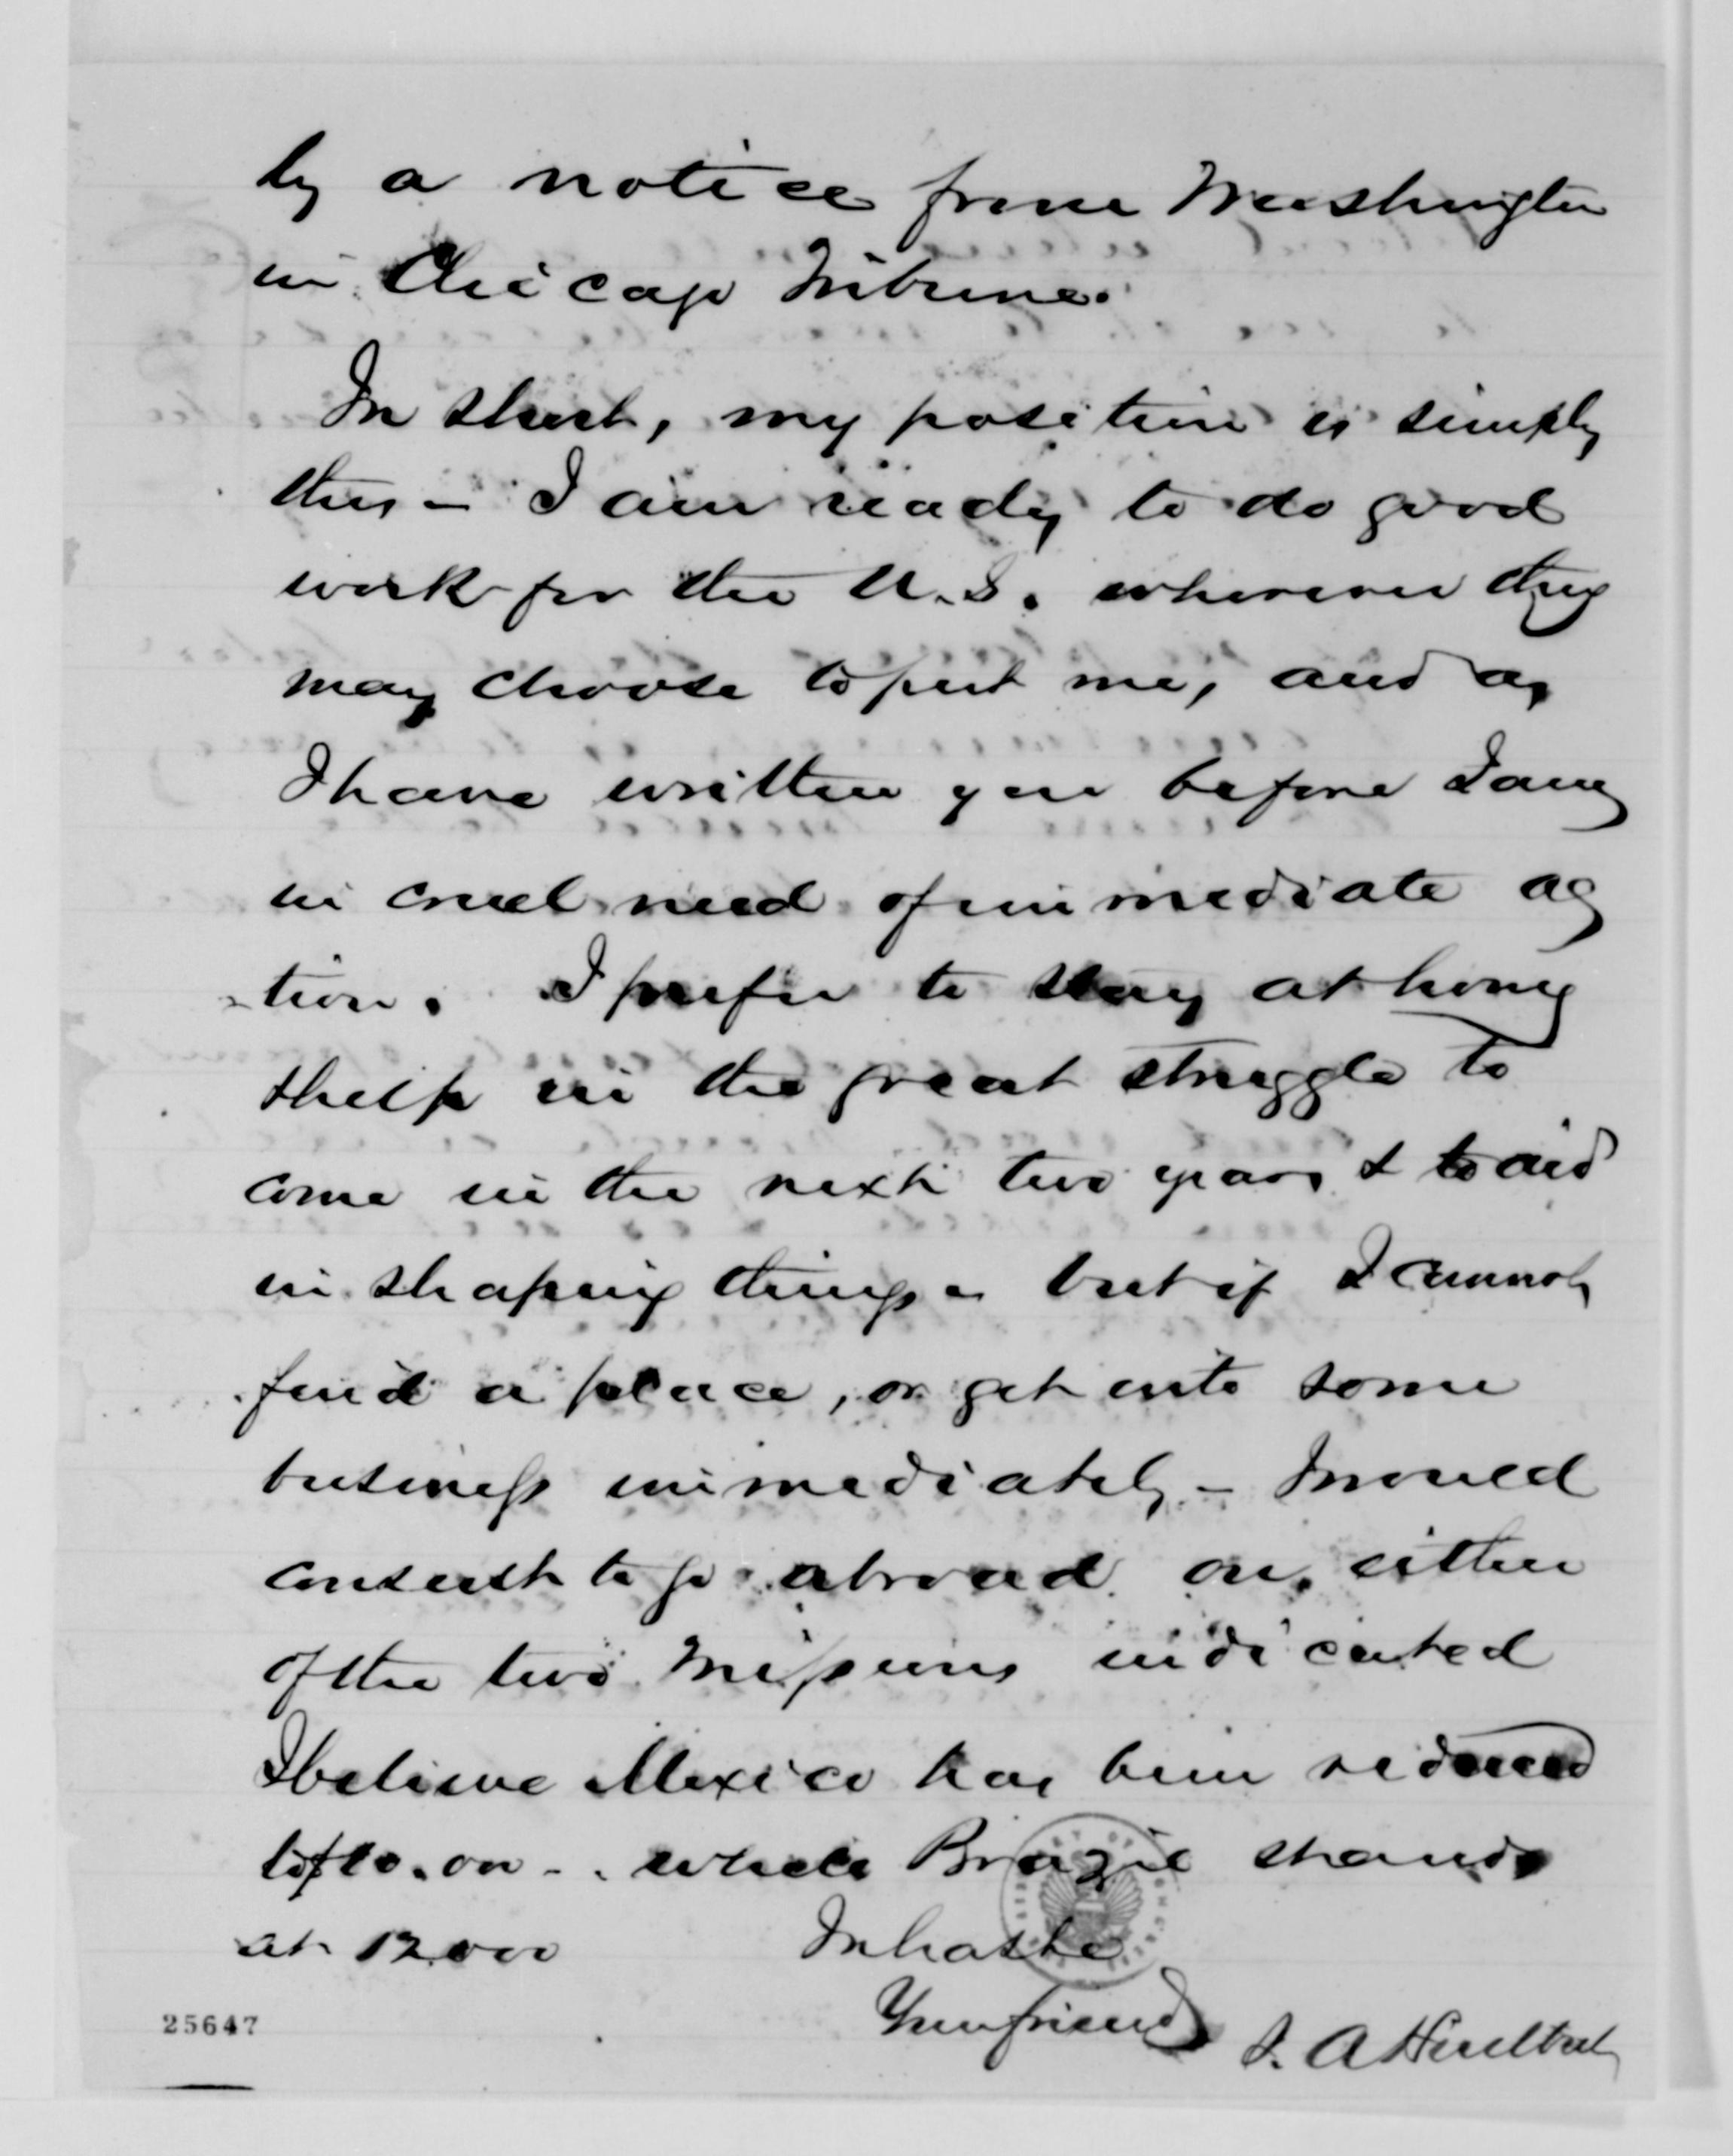 by a notice from Washington
in Chicago Tribune.
In short, my position is simply
this – I am ready to do good
work for the U.S. wherever they
may choose to put me, and as
I have written you before I am
in cruel need of immediate ac
-tion. I prefer to stay at home
& help in the great struggle to
come in the next two years & to aid
in shaping things – but if I cannot
find a place, or get into some
business immediately – I would
consent to go abroad on either
of the two missions indicated
I believe Mexico has been reduced
to while Brazil stands
at 12.000 In haste
Your friend S. A Hurlbut
25647